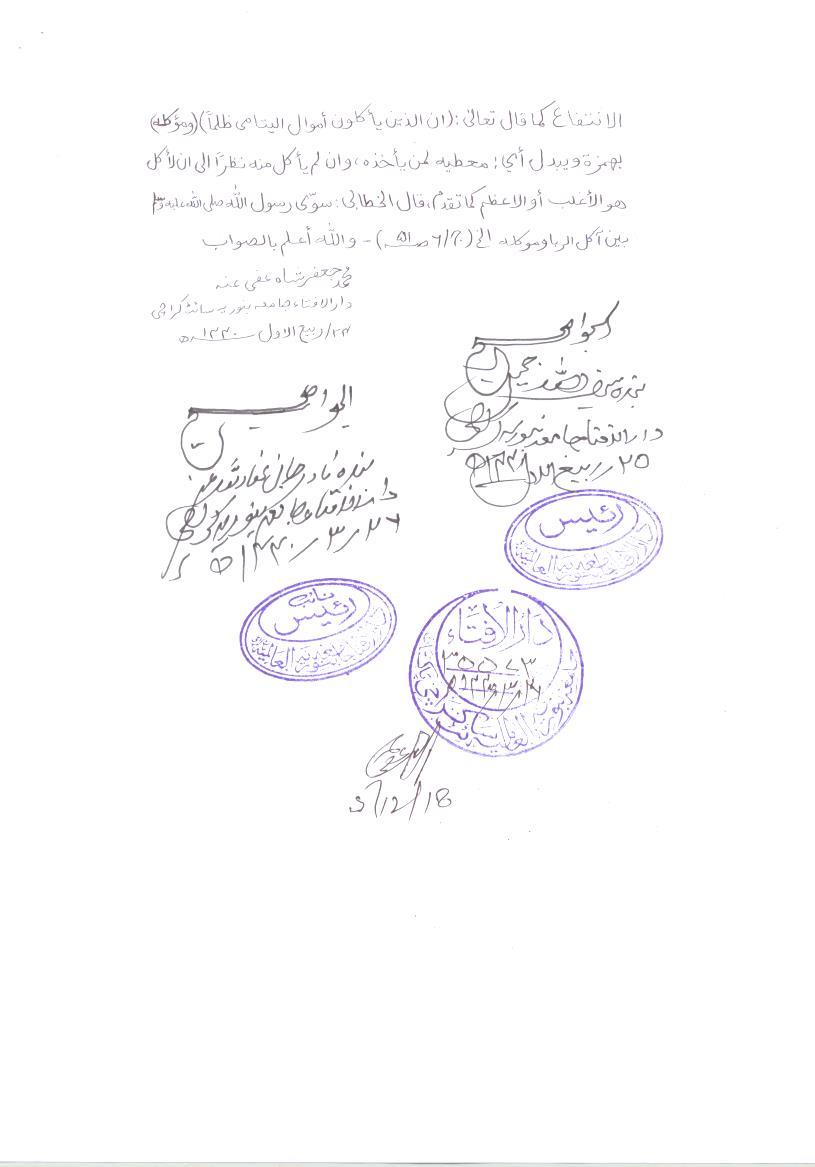 الانتفاع كما قال تعالى: (ان الذين يأكلون أموال اليتامى ظلماً) (ومؤكله)
بهمزة ويبدل أي: معطيه لمن يأخذه، وان لم يأكل منه نظرًا الى ان الأكل
هو الأغلب أو الاعظم كما تقدم، قال الخطابي: سوّى رسول الله صلى الله عليه وسلم
بين آكل الربا وموكله الخ (٦/٢٠ صـ ٥١) - والله أعلم بالصواب
محمد جعفر شاه عفی عنه
دار الافتاء جامعه بنوریہ سائٹ کراچی
۲۴/ربیع الاول ۱۴۴۰ھ
الجواب صحیح
بندہ سیف اللہ جمیل
دار الافتاء جامعہ بنوریہ کراچی
۲۵ ربیع الاول ۱۴۴۰ھ
الجواب صحیح
بندہ نادر جان
دار الافتاء جامعہ بنوریہ کراچی
۲۶ / ۳ / ۱۴۴۰ ھ
رئیس
دار الافتاء جامعہ بنوریہ العالمیہ
نائب
رئیس
دار الافتاء جامعہ بنوریہ العالمیہ
دار الافتاء
جامعہ بنوریہ العالمیہ
5/12/18